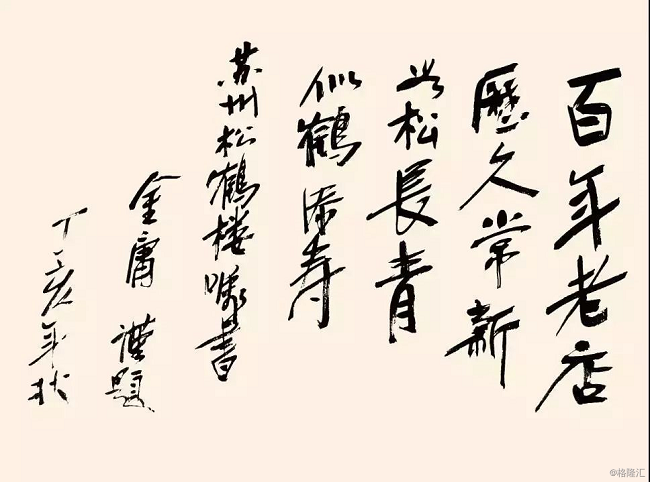 百年老店
歷久常新
如松長青
似鶴添寿
苏州松鶴楼嘱書
金庸 謹題
丁亥年秋
@格隆汇